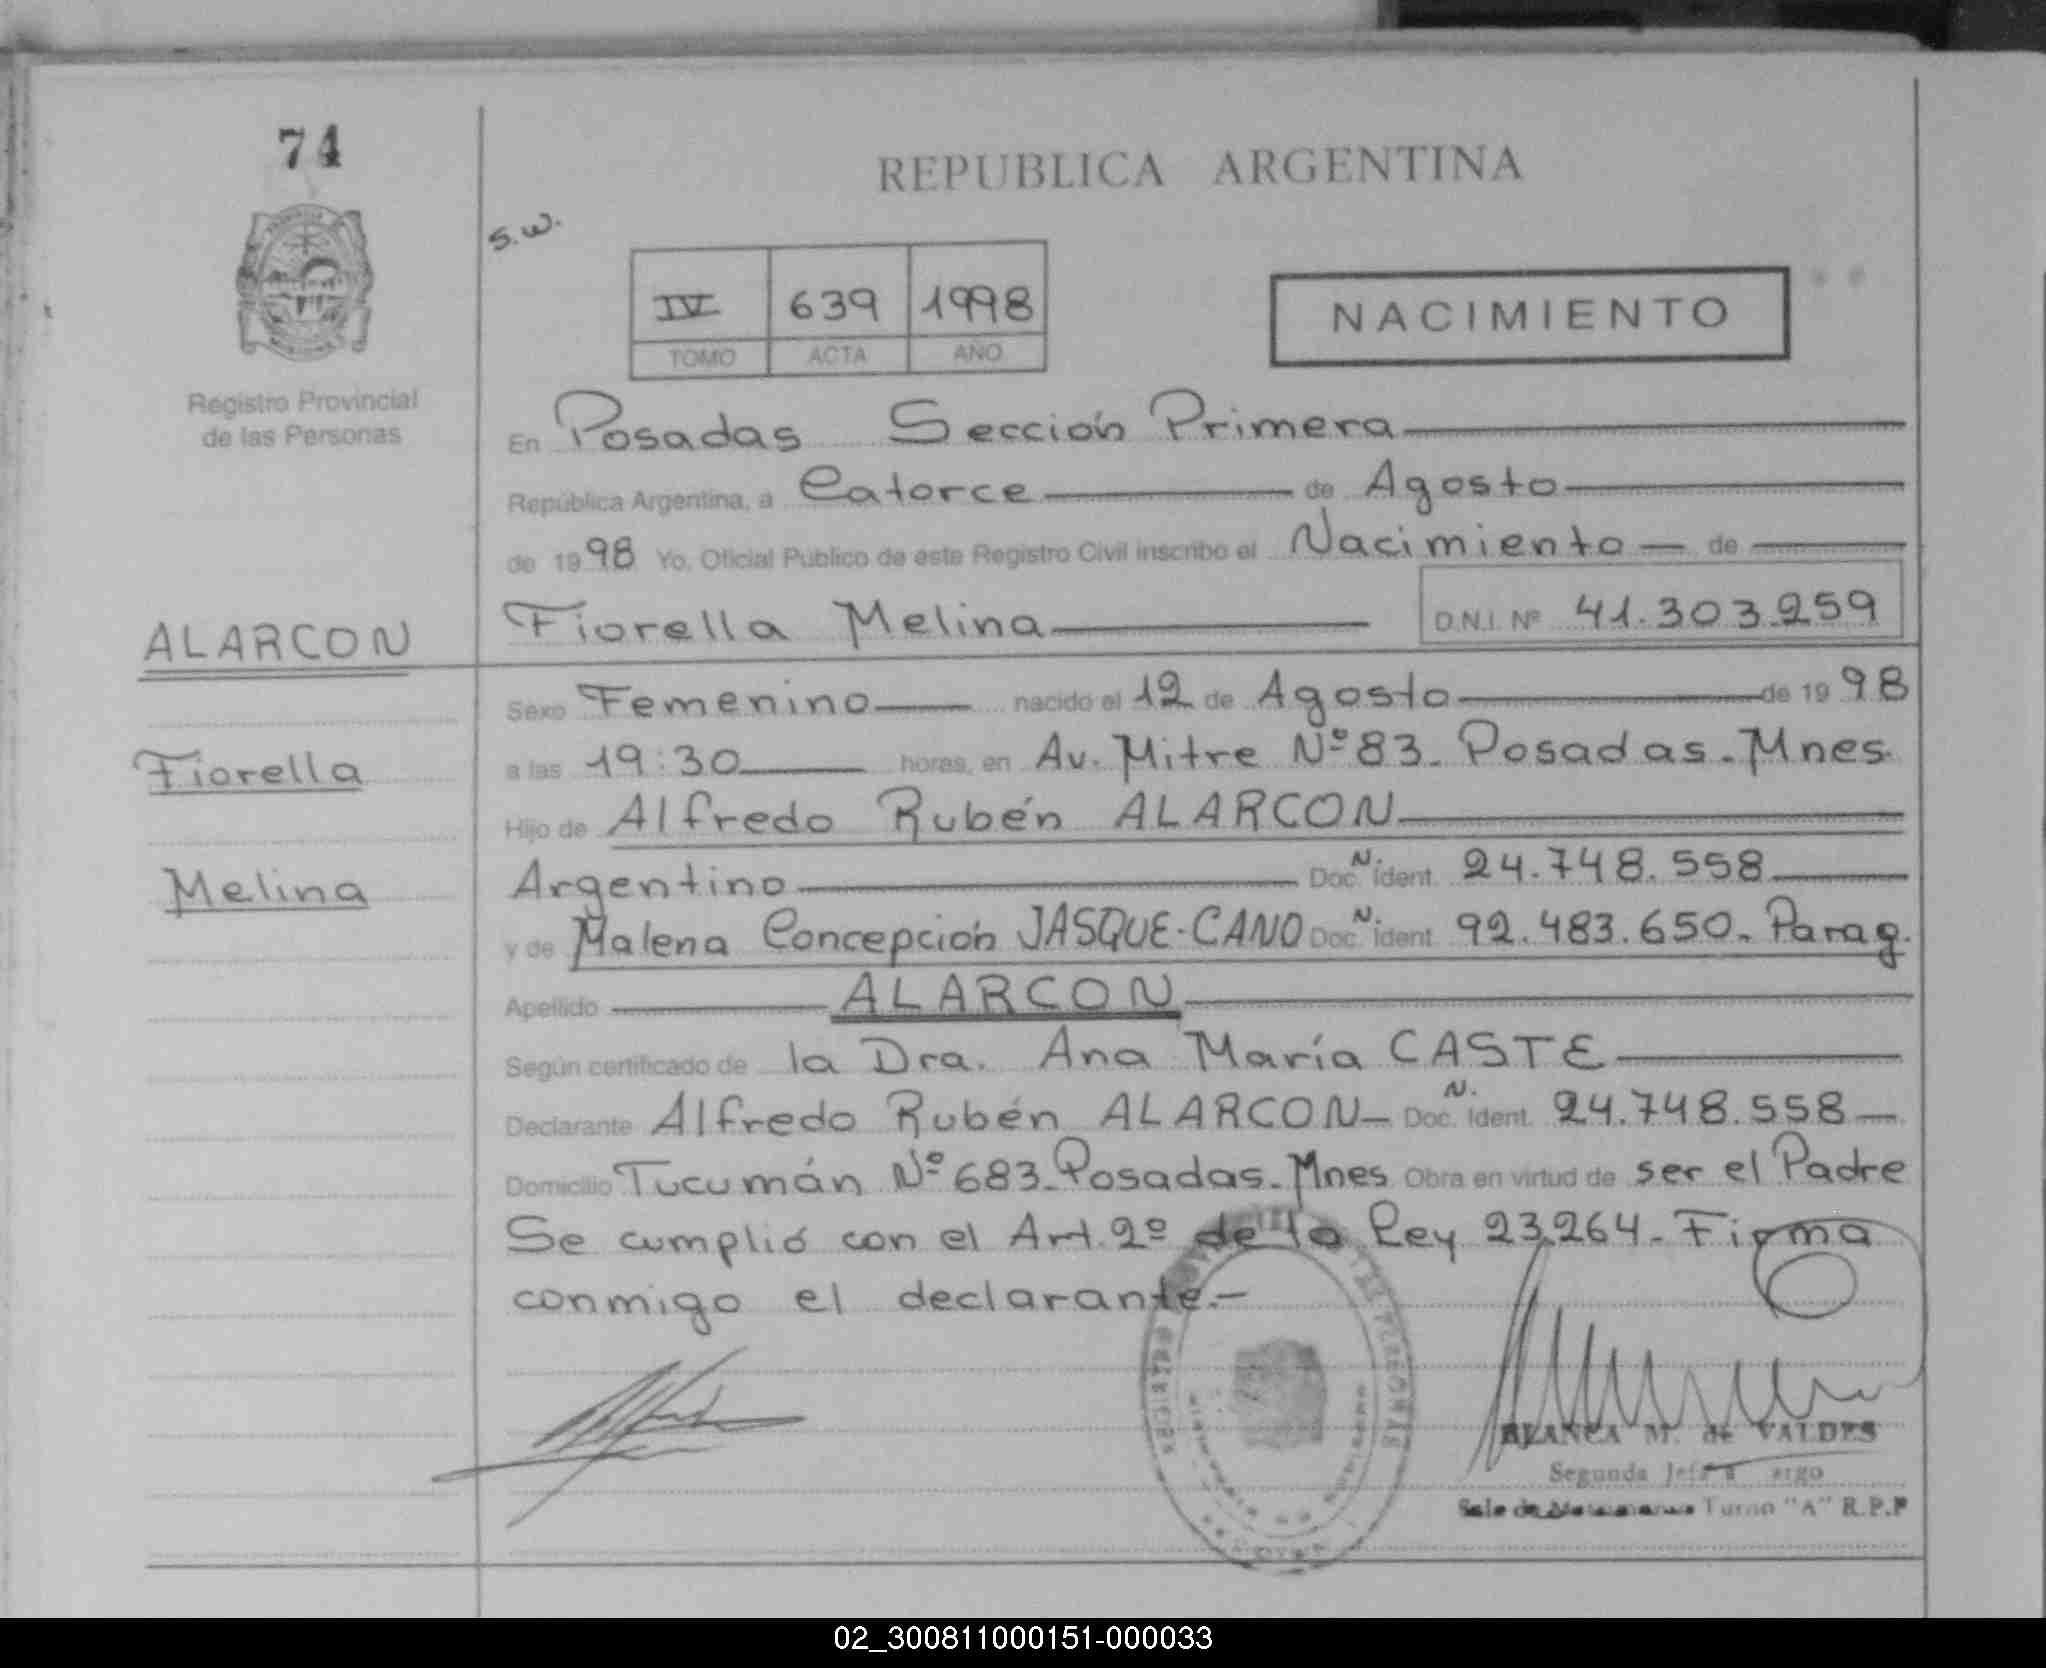 74
REPUBLICA ARGENTINA
s.w.
IV 639 1998
TOMO ACTA AÑO
NACIMIENTO
Registro Provincial
de las Personas
En Posadas Sección Primera
República Argentina, a Catorce de Agosto
de 1998 Yo, Oficial Público de este Registro Civil inscribo el Nacimiento de
Fiorella Melina D.N.I. Nº 41.303.259
ALARCON
Sexo Femenino nacido el 12 de Agosto de 1998
Fiorella
a las 19:30 horas, en Av. Mitre Nº 83. Posadas. Mnes.
Hijo de Alfredo Rubén ALARCON
Melina
Argentino Doc. N. Ident. 24.748.558
y de Malena Concepción JASQUE-CANO Doc. N. Ident. 92.483.650. Parag.
Apellido ALARCON
Según certificado de la Dra. Ana María CASTE
Declarante Alfredo Rubén ALARCON Doc. N. Ident. 24.748.558
Domicilio Tucumán Nº 683. Posadas. Mnes Obra en virtud de ser el Padre
Se cumplió con el Art. 2º de la Ley 23.264. Firma
conmigo el declarante.-
BLANCA M. de VALDES
Segunda Jefa
Turno "A" R.P.P
02_300811000151-000033